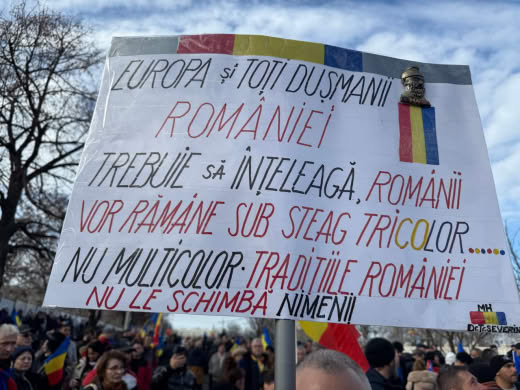 EUROPA și TOȚI DUȘMANII
ROMÂNIEI
TREBUIE să ÎNȚELEAGĂ, ROMÂNII
VOR RĂMÂNE SUB STEAG TRICOLOR.....
NU MULTICOLOR. TRADIȚIILE ROMÂNIEI
NU LE SCHIMBĂ NIMENII
MH
DR.TR-SEVERIN